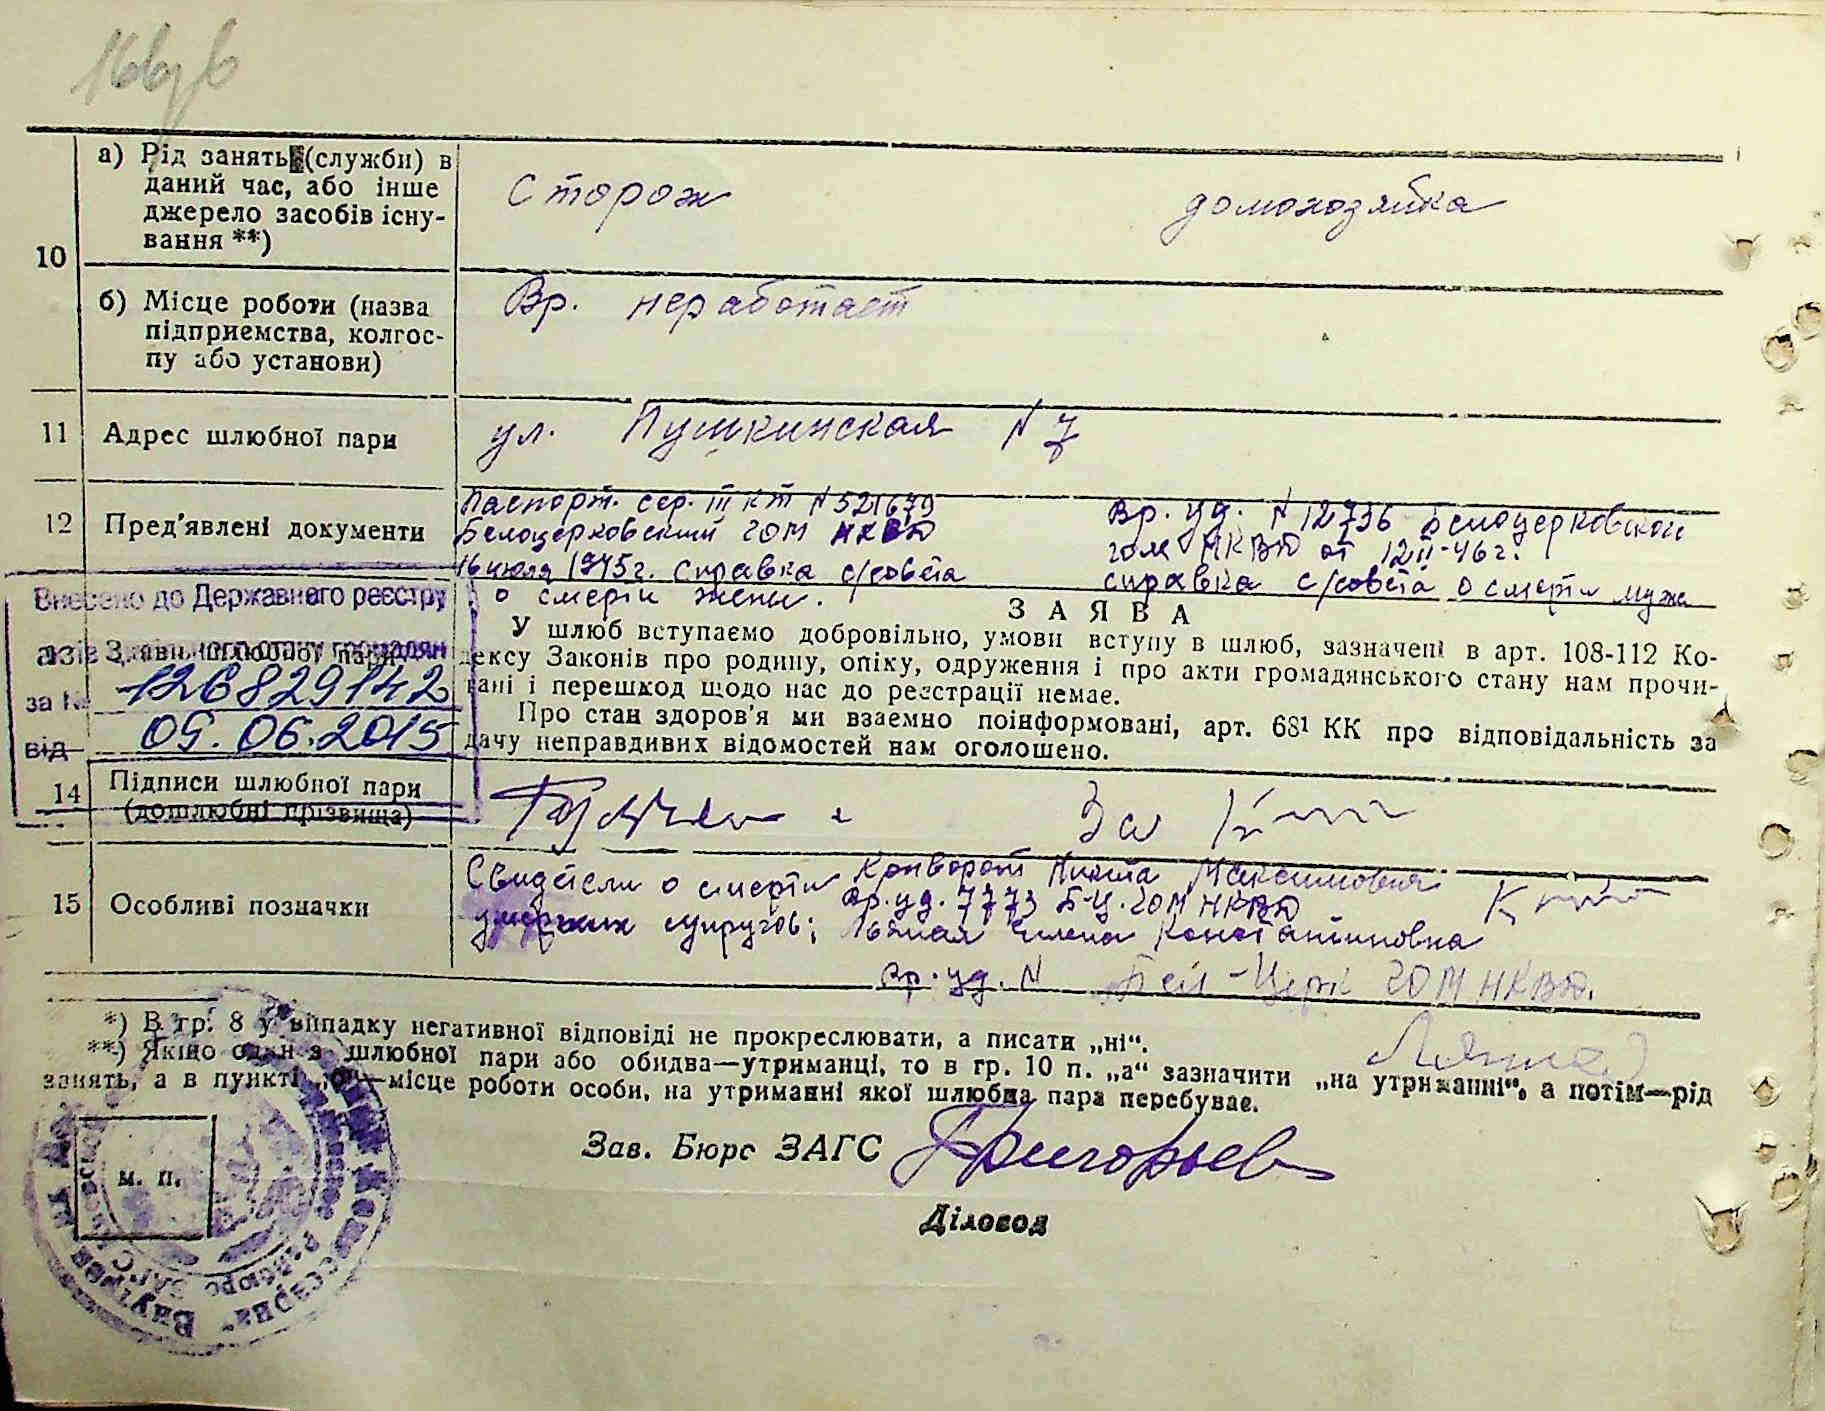 10
а) Рід занять (служби) в
даний час, або інше
джерело засобів існу-
вання **)
Сторож
домохозяйка
б) Місце роботи (назва
підприємства, колгос-
пу або установи)
Вр. неработает
11 Адрес шлюбної пари
ул. Пушкинская N 7
12 Пред'явлені документи
Паспорт. сер. III КТ N 521679
Белоцерковский ГОМ НКВД
16 июля 1945г. справка с/совета
о смерти жены.
Вр. уд. N 12736 Белоцерковской
гом НКВД от 12/II-46г.
справка с/совета о смерти мужа
Внесено до Державного реєстру
актів цивільного стану громадян
за № 126829142
від 09.06.2015
Заяви шлюбної пари
ЗАЯВА
У шлюб вступаємо добровільно, умови вступу в шлюб, зазначені в арт. 108-112 Ко-
дексу Законів про родину, опіку, одруження і про акти громадянського стану нам прочи-
тані і перешкод щодо нас до реєстрації немає.
Про стан здоров'я ми взаємно поінформовані, арт. 68¹ КК про відповідальність за
дачу неправдивих відомостей нам оголошено.
14 Підписи шлюбної пари
(дошлюбні прізвища)
За
15 Особливі позначки
Свидетели о смерти Криворот Никита Максимович
умерших супругов; Вр. уд. 7773 Б-Ц. ГОМ НКВД
Елена Константиновна
Вр. уд. N Бел-Церк ГОМ НКВД.
*) В гр. 8 у випадку негативної відповіді не прокреслювати, а писати „ні“.
**) Якщо один з шлюбної пари або обидва—утриманці, то в гр. 10 п. „а“ зазначити „на утриманні“, а потім—рід
занять, а в пункті „б“—місце роботи особи, на утриманні якої шлюбна пара перебуває.
м. п.
Зав. Бюро ЗАГС Григорьев
Діловод